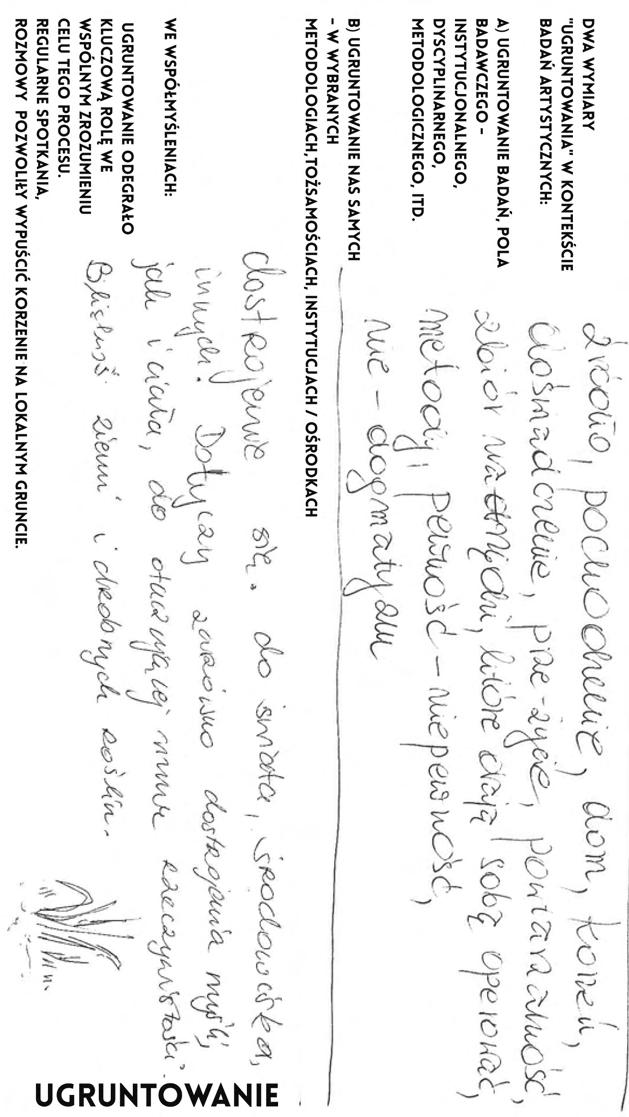 DWA WYMIARY
"UGRUNTOWANIA" W KONTEKŚCIE
BADAŃ ARTYSTYCZNYCH:
A) UGRUNTOWANIE BADAŃ, POLA
BADAWCZEGO –
INSTYTUCJONALNEGO,
DYSCYPLINARNEGO,
METODOLOGICZNEGO, ITD.
B) UGRUNTOWANIE NAS SAMYCH
– W WYBRANYCH
METODOLOGIACH,TOŻSAMOŚCIACH, INSTYTUCJACH / OŚRODKACH
WE WSPÓŁMYŚLENIACH:
UGRUNTOWANIE ODEGRAŁO
KLUCZOWĄ ROLĘ WE
WSPÓLNYM ZROZUMIENIU
CELU TEGO PROCESU.
REGULARNE SPOTKANIA,
ROZMOWY POZWOLIŁY WYPUŚCIĆ KORZENIE NA LOKALNYM GRUNCIE.
źródło, pochodzenie, dom, korzeń,
doświadczenie, prze-życie, powtarzalność,
zbiór narzędzi, które dają sobą operować,
metody, pewność – niepewność,
nie – dogmatyzm
dostrojenie się. do świata, środowiska,
innych. Dotyczy zarówno dostrojenia myśli,
jak i ciała, do otaczającej mnie rzeczywistości.
Bliskość ziemi i drobnych roślin.
UGRUNTOWANIE